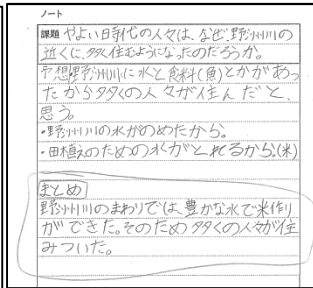 ノート
課題 やよい時代の人々は、なぜ、野洲川の
近くに、多く住むようになったのだろうか。
予想野洲川に水と食料(魚)とかがあっ
たから多くの人々が住んだと、
思う。
・野洲川の水がのめたから。
・田植えのための水がとれるから。(米)
まとめ
野洲川のまわりでは、豊かな水で米作り
ができた。そのため多くの人々が住
みついた。